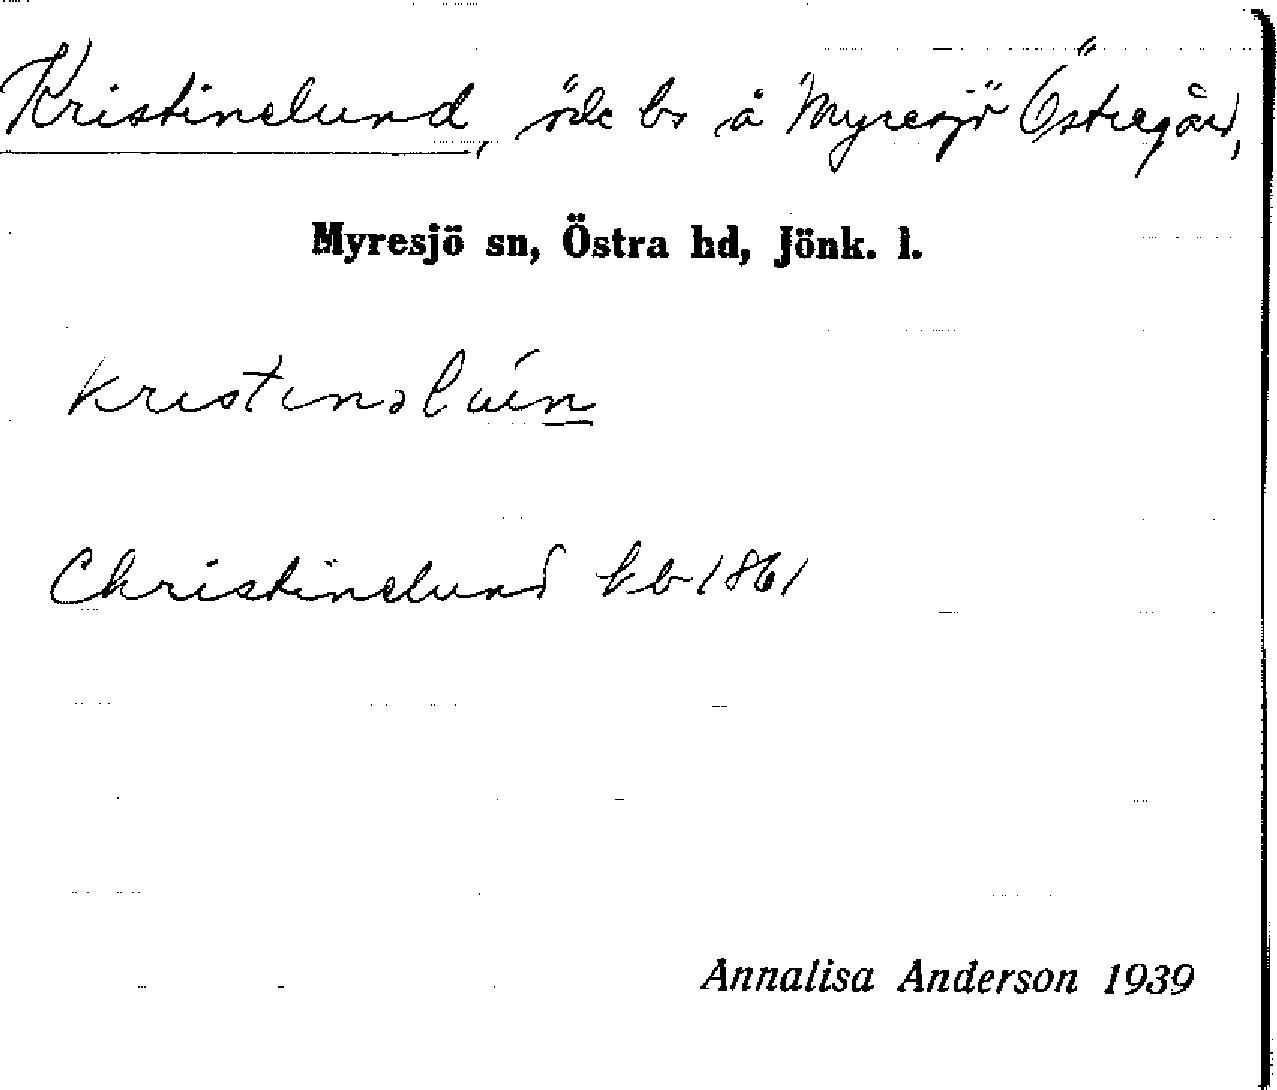 Kristinelund, öde bs å Myresjö Östregård,
Myresjö sn, Östra hd, Jönk. l.
kristinəlún
Christinelund kb 1861
Annalisa Anderson 1939